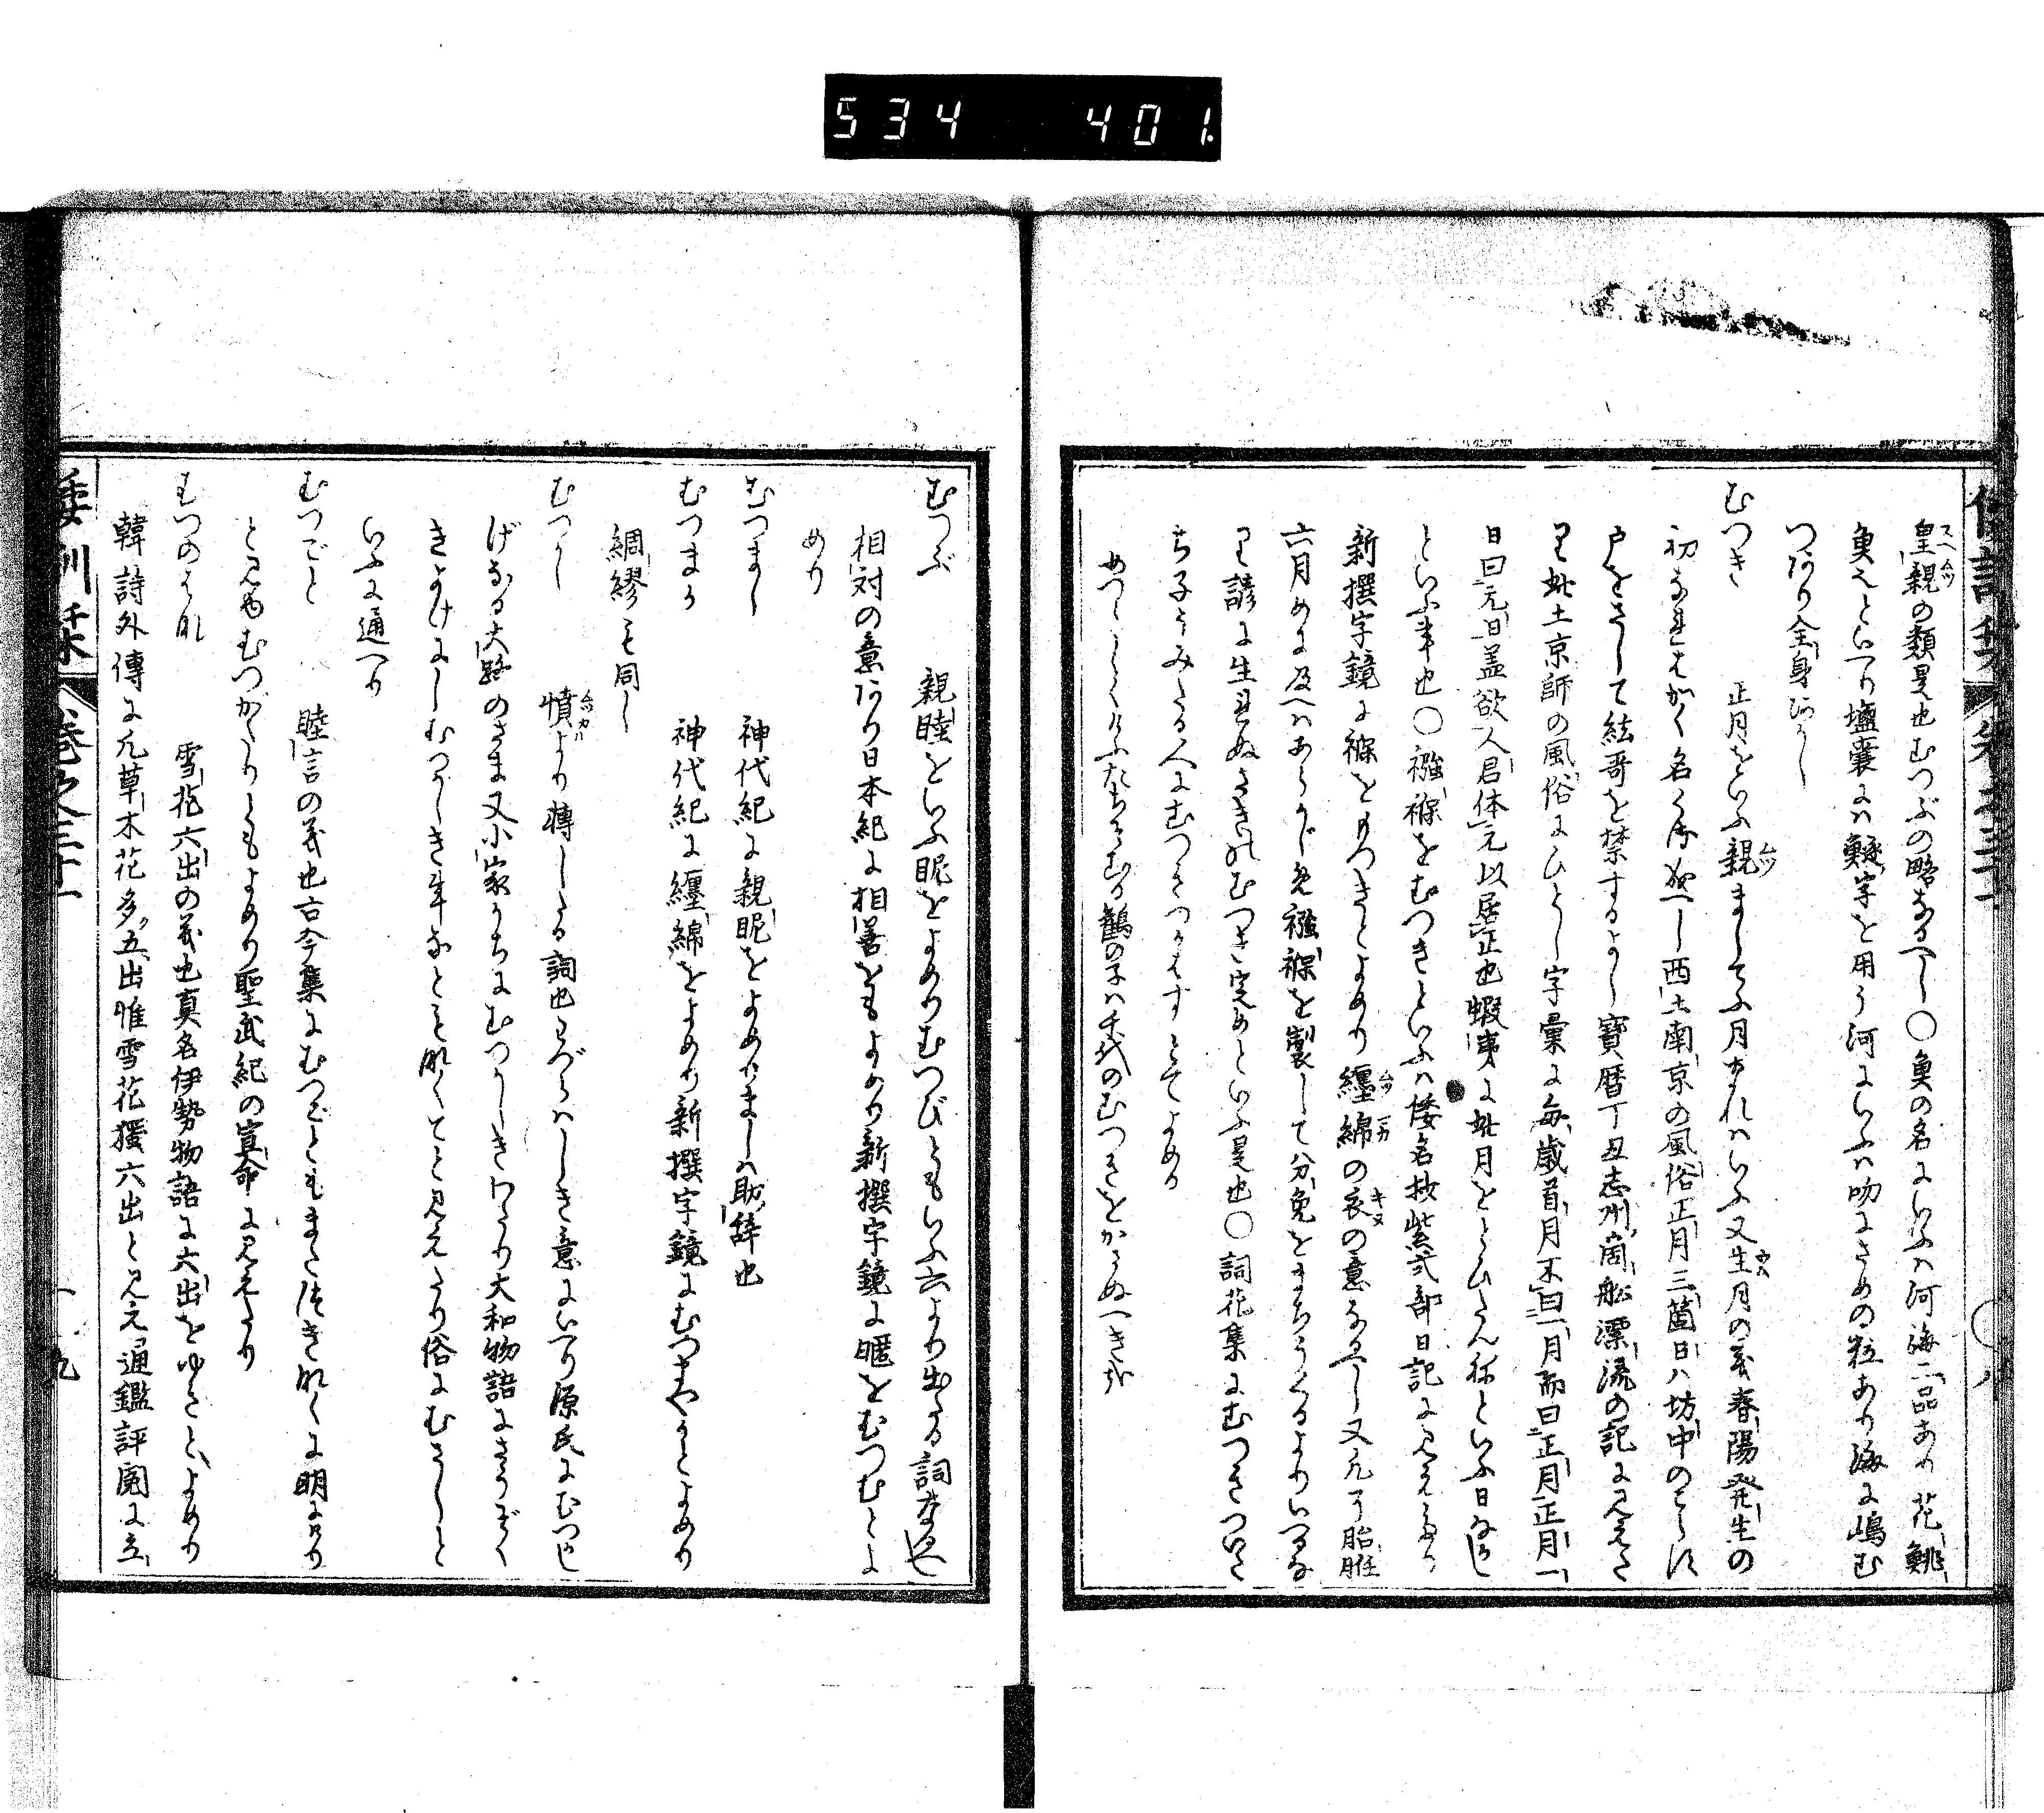 534 401
皇親の類是也むつぶの略なるへし〇魚の名にいふハ河海二品あり花鮡
魚也といへり壒囊にハ鯥字を用う河にいふハ吻にさめの粒あり海に嶋む
つあり全身
むつき 正月をいふ親ましてふ月なれハいふ又生月の義春陽発生の
初なれはかく名くるなへし西土南京の風俗正月三箇日ハ坊中の
戸をさして絃哥を禁するよし寶暦丁丑志州商舩漂流の記に見えた
り此土京師の風俗にひとし字彙に每歳首月不曰一月而曰正月正月一
日曰元日盖欲人君体元以居正也蝦夷に此月をとひたんねといふ日なかし
といふ事也〇襁褓をむつきといふハ倭名抄紫式部日記に見えたり
新撰字鏡に褓をむつきとよめり纏綿の衣の意なるへし又凡そ胎胚
六月めに及へハあらかしめ襁褓を製して分免をまちうくるよりいつるな
り諺に生れぬさきのむつき定めといふ是也〇詞花集にむつきついて
ち子うみたる人にむつきつかはすとてよめる
めつらしくけふたちそむる鶴の子ハ千代のむつきをかさぬへき哉
むつぶ 親睦をいふ昵をよめりむつびともいふ六より出たる詞なるへし
相対の意あり日本紀に相善をもよめり新撰字鏡に暱をむつむとよ
めり
むつまし 神代紀に親昵をよめりましハ助辞也
むつまか 神代紀に纏綿をよめり新撰字鏡にむつまやかとよめり
綢繆も同し
むつかし 憤より轉したる詞也わづらハしき意にいへり源氏にむつかし
げなる大路のさま又小家かちにむつかしきわたり大和物語にさうぞく
きよけにしむつかしき事なとも見えたり俗にむさしと
いふに通へり
むつごと 睦言の義也古今集にむつごともまたつきなくに明にけり
と見ゆむつがたりともよめり聖武紀の宣命に見えたり
むつのはな 雪花六出の義也真名伊勢物語に六出をゆきとよめり
韓詩外傳に凡草木花多五出惟雪花獨六出と見え通鑑評閱に立
倭訓栞 卷之三十一 十九